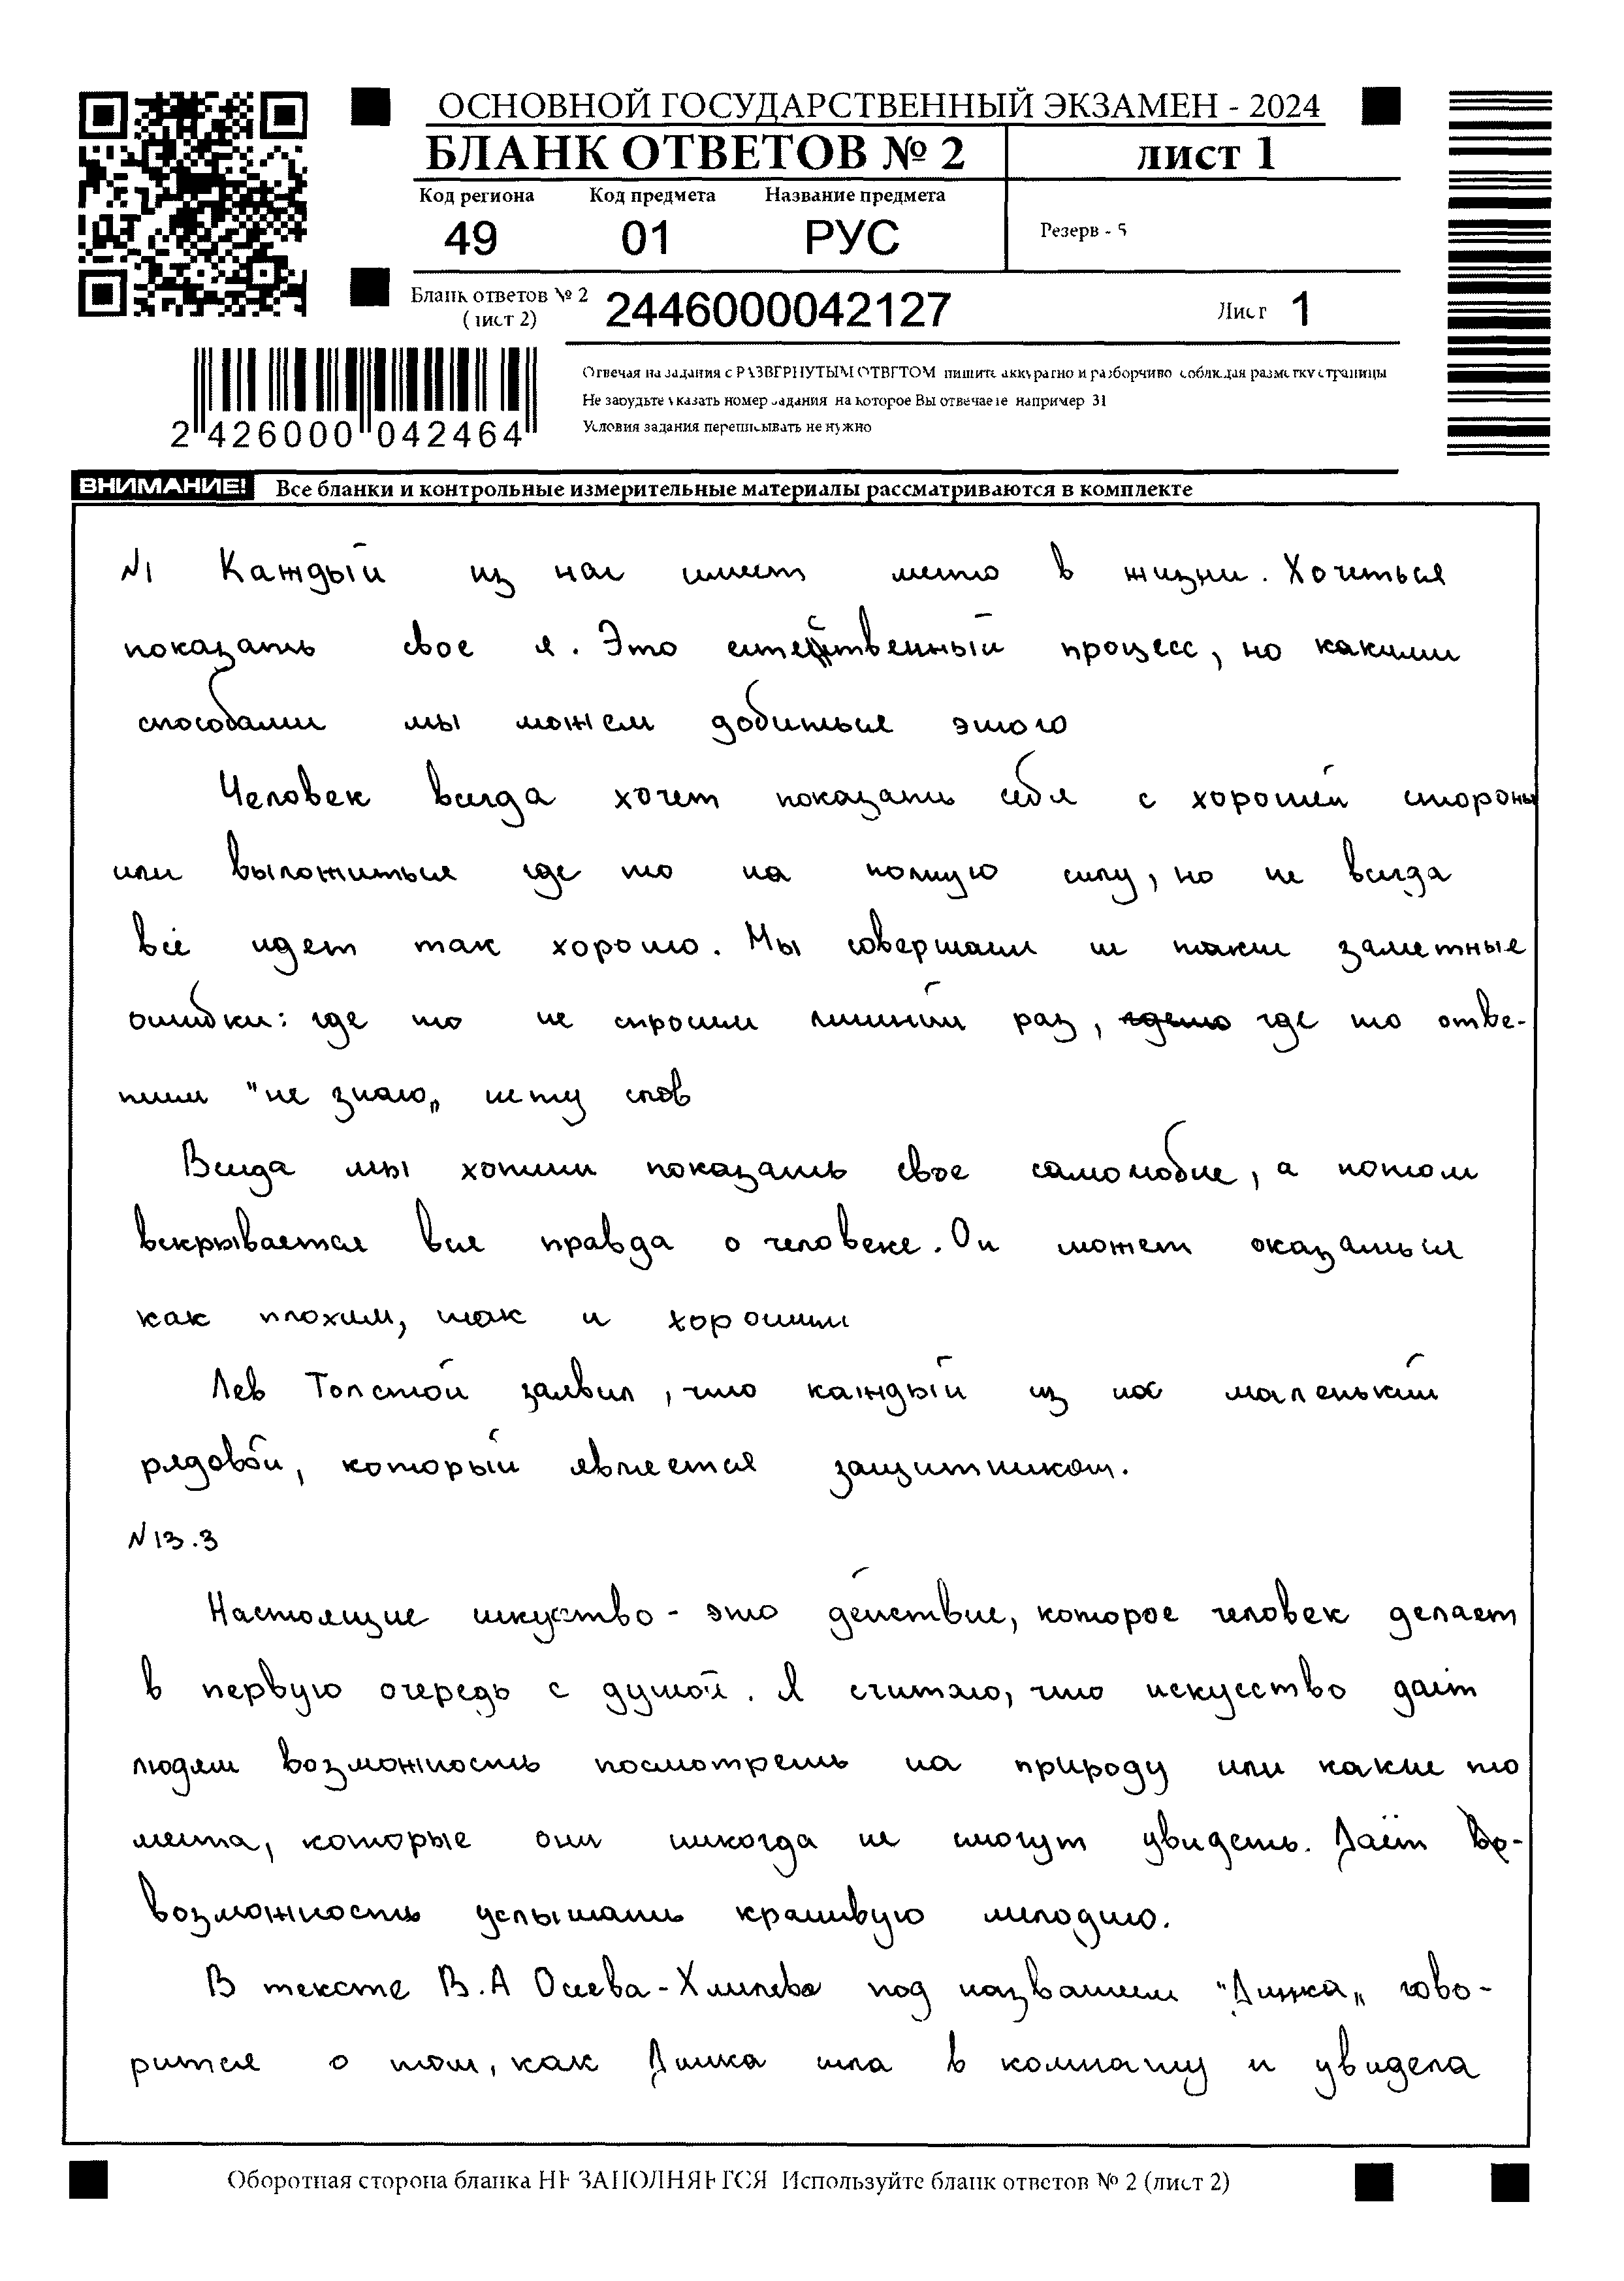 ОСНОВНОЙ ГОСУДАРСТВЕННЫЙ ЭКЗАМЕН - 2024
БЛАНК ОТВЕТОВ № 2
лист 1
Код региона Код предмета Название предмета
49 01 РУС
Резерв - 5
Бланк ответов № 2
(лист 2)
2446000042127
Лист 1
Отвечая на задания с РАЗВЕРНУТЫМ ОТВЕТОМ пишите аккуратно и разборчиво соблюдая разметку страницы
Не забудьте указать номер задания на которое Вы отвечаете например 31
Условия задания переписывать не нужно
2 426000 042464
ВНИМАНИЕ! Все бланки и контрольные измерительные материалы рассматриваются в комплекте
N1 Каждый из нас имеет место в жизни. Хочеться
показать свое я. Это естественный процесс, но какими
способами мы можем добиться этого
Человек всегда хочет показать себя с хорошей стороны
или выложиться где то на полную силу, но не всегда
всё идет так хорошо. Мы совершаем не такие заметные
ошибки: где то не спросили лишний раз, где то отве-
тили "не знаю„ нету слов
Всегда мы хотим показать свое самолюбие, а потом
вскрывается вся правда о человеке. Он может оказаться
как плохим, так и хорошим
Лев Толстой заявил, что каждый из нас маленький
рядовой, который является защитником.
N 13.3
Настоящие искуство - это действие, которое человек делает
в первую очередь с душой. Я считаю, что искусство даёт
людям возможность посмотреть на природу или какие то
места, которые они никогда не смогут увидеть. Даёт
возможность услышать красивую мелодию.
В тексте В.А Осева-Хмелева под названием "Динка„ гово-
рится о том, как Динка шла в комнату и увидела
Оборотная сторона бланка НЕ ЗАПОЛНЯЕТСЯ Используйте бланк ответов № 2 (лист 2)